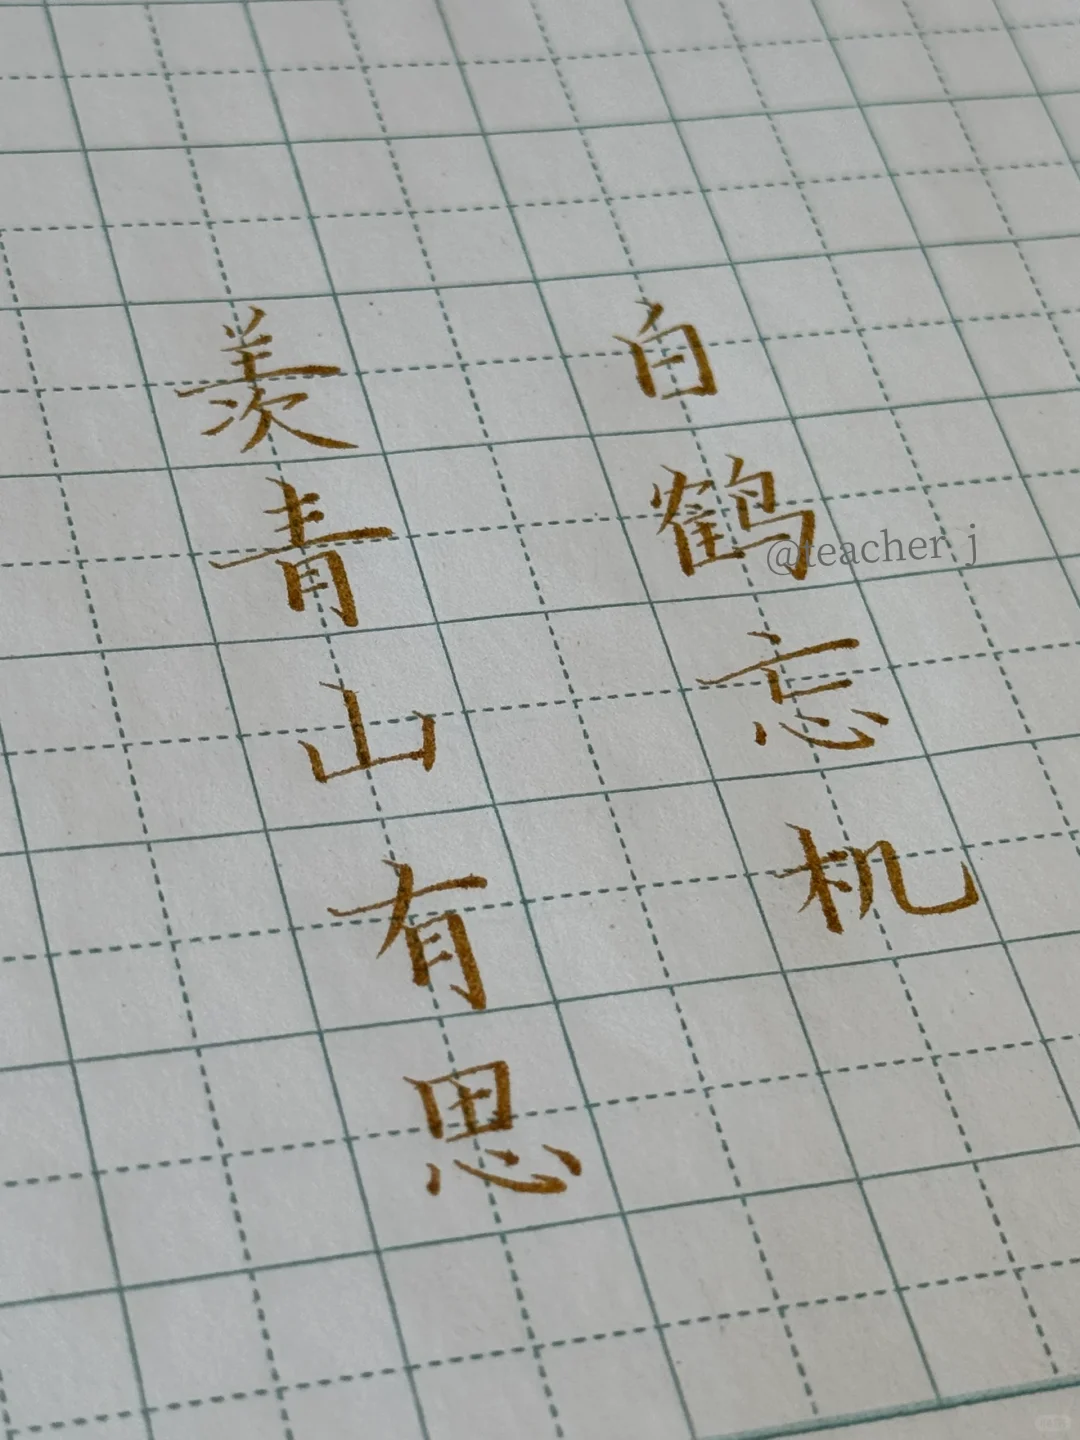 羡青山有思
白鹤忘机
@teacher j